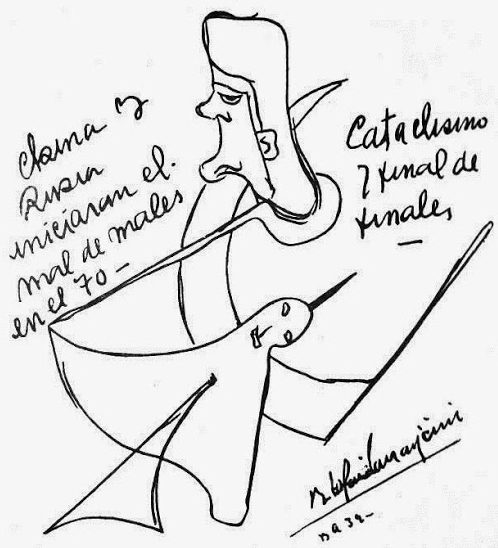 China y
Rusia
iniciaran el
mal de males
en el 70 —
Cataclismo
y final de
finales
—